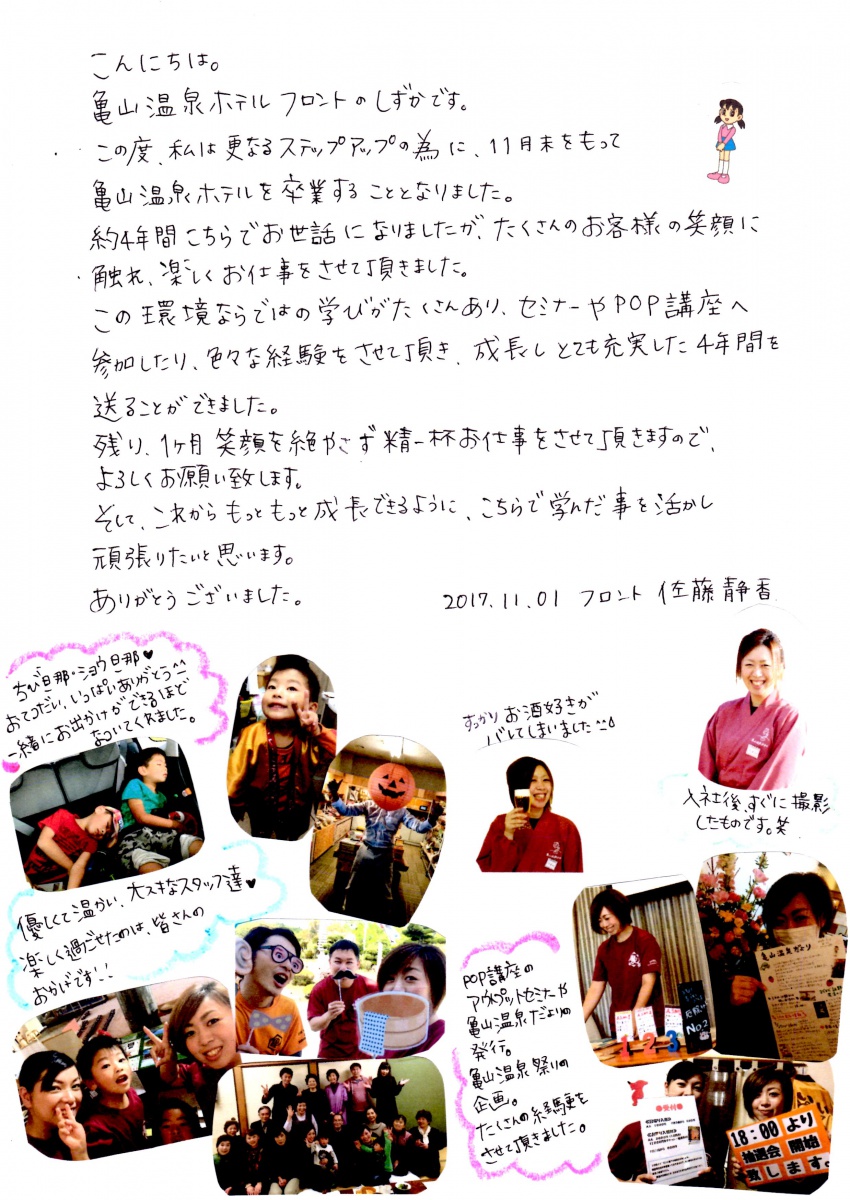 こんにちは。
亀山温泉ホテル フロントのしずかです。
この度、私は更なるステップアップの為に、11月末をもって
亀山温泉ホテルを卒業することとなりました。
約4年間こちらでお世話になりましたが、たくさんのお客様の笑顔に
触れ、楽しくお仕事をさせて頂きました。
この環境ならではの学びがたくさんあり、セミナーやPOP講座へ
参加したり、色々な経験をさせて頂き、成長しとても充実した4年間を
送ることができました。
残り、1ヶ月笑顔を絶やさず精一杯お仕事をさせて頂きますので、
よろしくお願い致します。
そして、これからもっともっと成長できるように、こちらで学んだ事を活かし
頑張りたいと思います。
ありがとうございました。
2017.11.01 フロント 佐藤静香
ちび旦那・ショウ旦那♥
おてつだい、いっぱいありがとう^^
一緒にお出かけができるほど
なついてくれました。
すっかりお酒好きが
バレてしまいました^^
入社後、すぐに撮影
したものです。笑
優しくて温かい、大スキなスタッフ達♥
楽しく過だせたのは、皆さんの
おかげです!!
POP講座の
アウトプットセミナーや
亀山温泉だよりの
発行。
亀山温泉祭りの
企画。
たくさんの経験を
させて頂きました。
No.2
1 2 3
亀山温泉祭り
●受付●
18:00より
抽選会開始
致します。